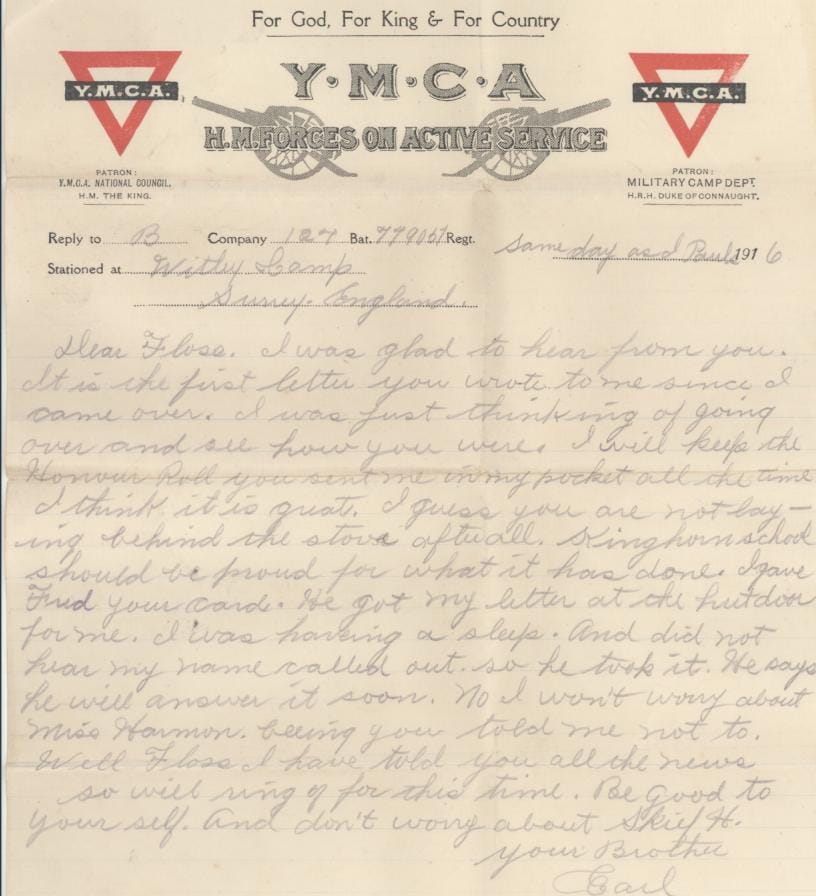 For God, For King & For Country
Y·M·C·A
Y.M.C.A.
Y.M.C.A.
H.M. FORCES ON ACTIVE SERVICE
PATRON:
Y.M.C.A. NATIONAL COUNCIL.
H.M. THE KING.
PATRON:
MILITARY CAMP DEPT.
H.R.H. DUKE OF CONNAUGHT.
Reply to B Company 127 Bat. 779051 Regt.
same day as Pauls 1916
Stationed at Witley Camp
Surrey. England.
Dear Floss. I was glad to hear from you.
It is the first letter you wrote to me since I
came over. I was just thinking of going
over and see how you were. I will keep the
Honour Roll you sent me in my pocket all the time
I think it is great. I guess you are not lay-
ing behind the stove afterall. Kinghorn school
should be proud for what it has done. I gave
Fred your card. He got my letter at the hutdoor
for me. I was having a sleep. And did not
hear my name called out. so he took it. He says
he will answer it soon. No I won't worry about
Miss Harmon. beeing you told me not to.
Well Floss I have told you all the news
so will ring of for this time. Be good to
your self. And don't worry about H.
your Brother
Earl